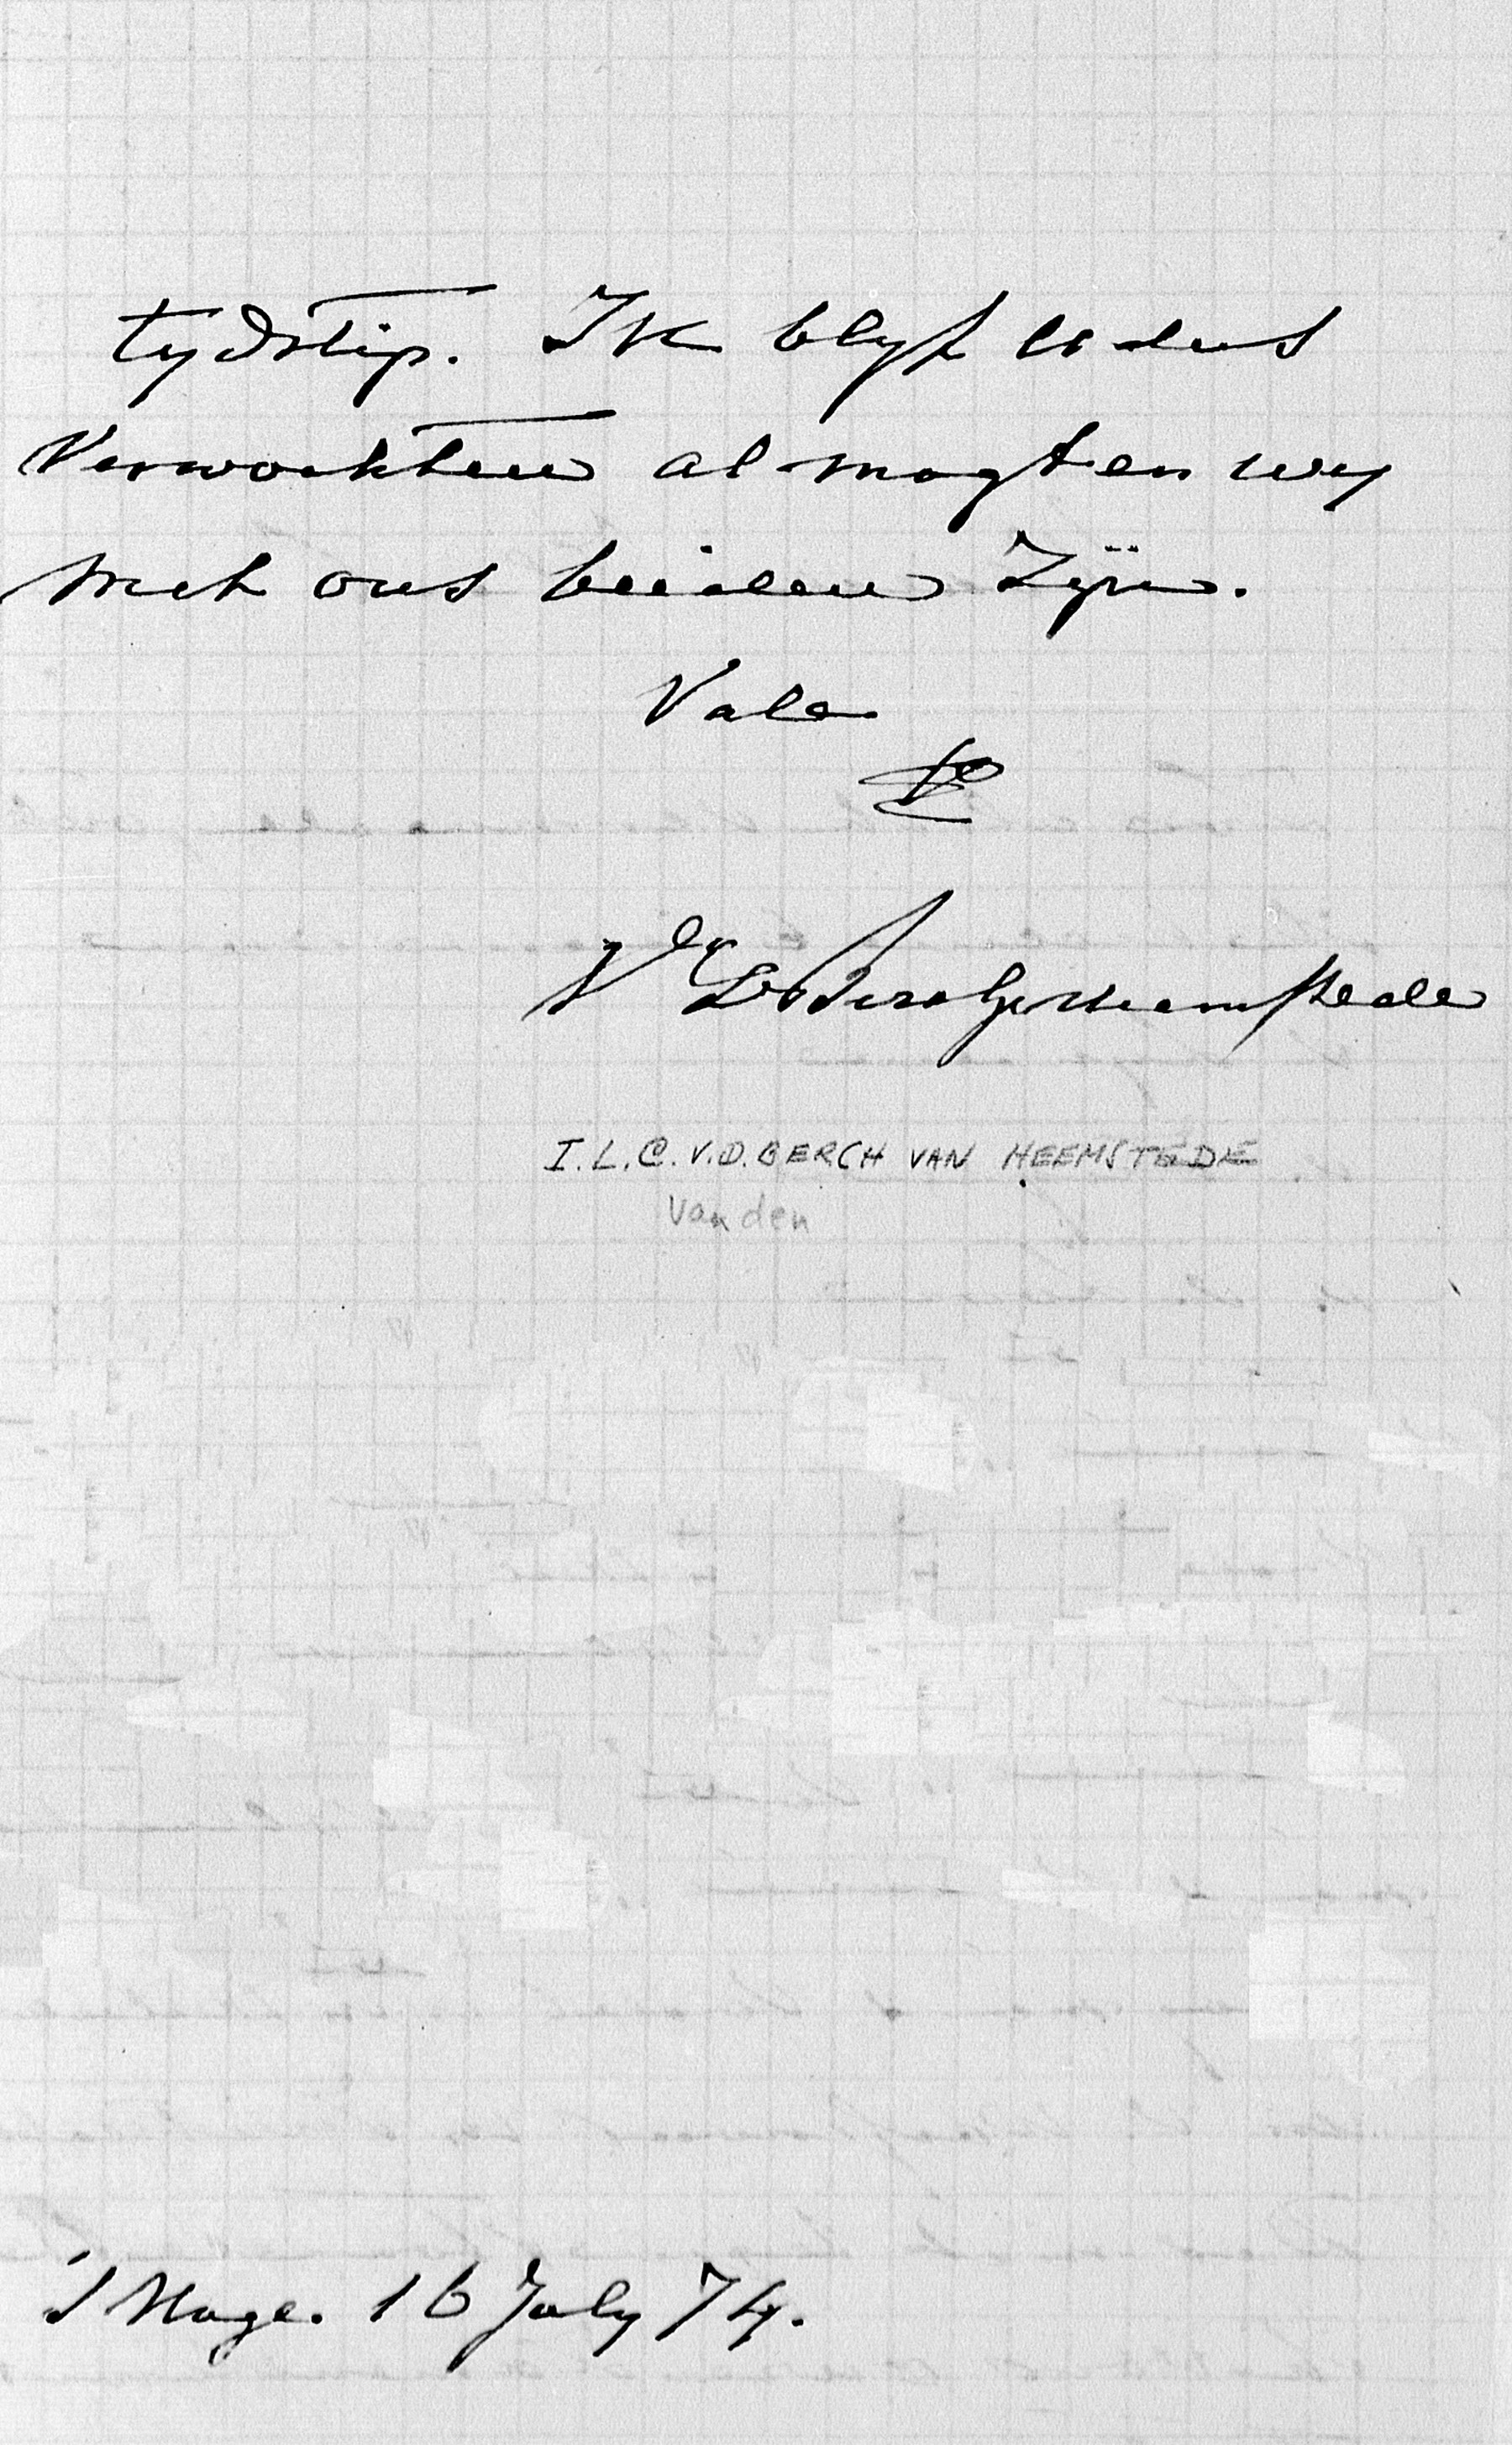 tydstip. Ik blyf U dus
Verwachten al mogten wy
met ons beiden zÿn.
Vale
Heemstede
I.L.C.V.D. BERCH VAN HEEMSTEDE
Van den
's Hage. 16 July 74.